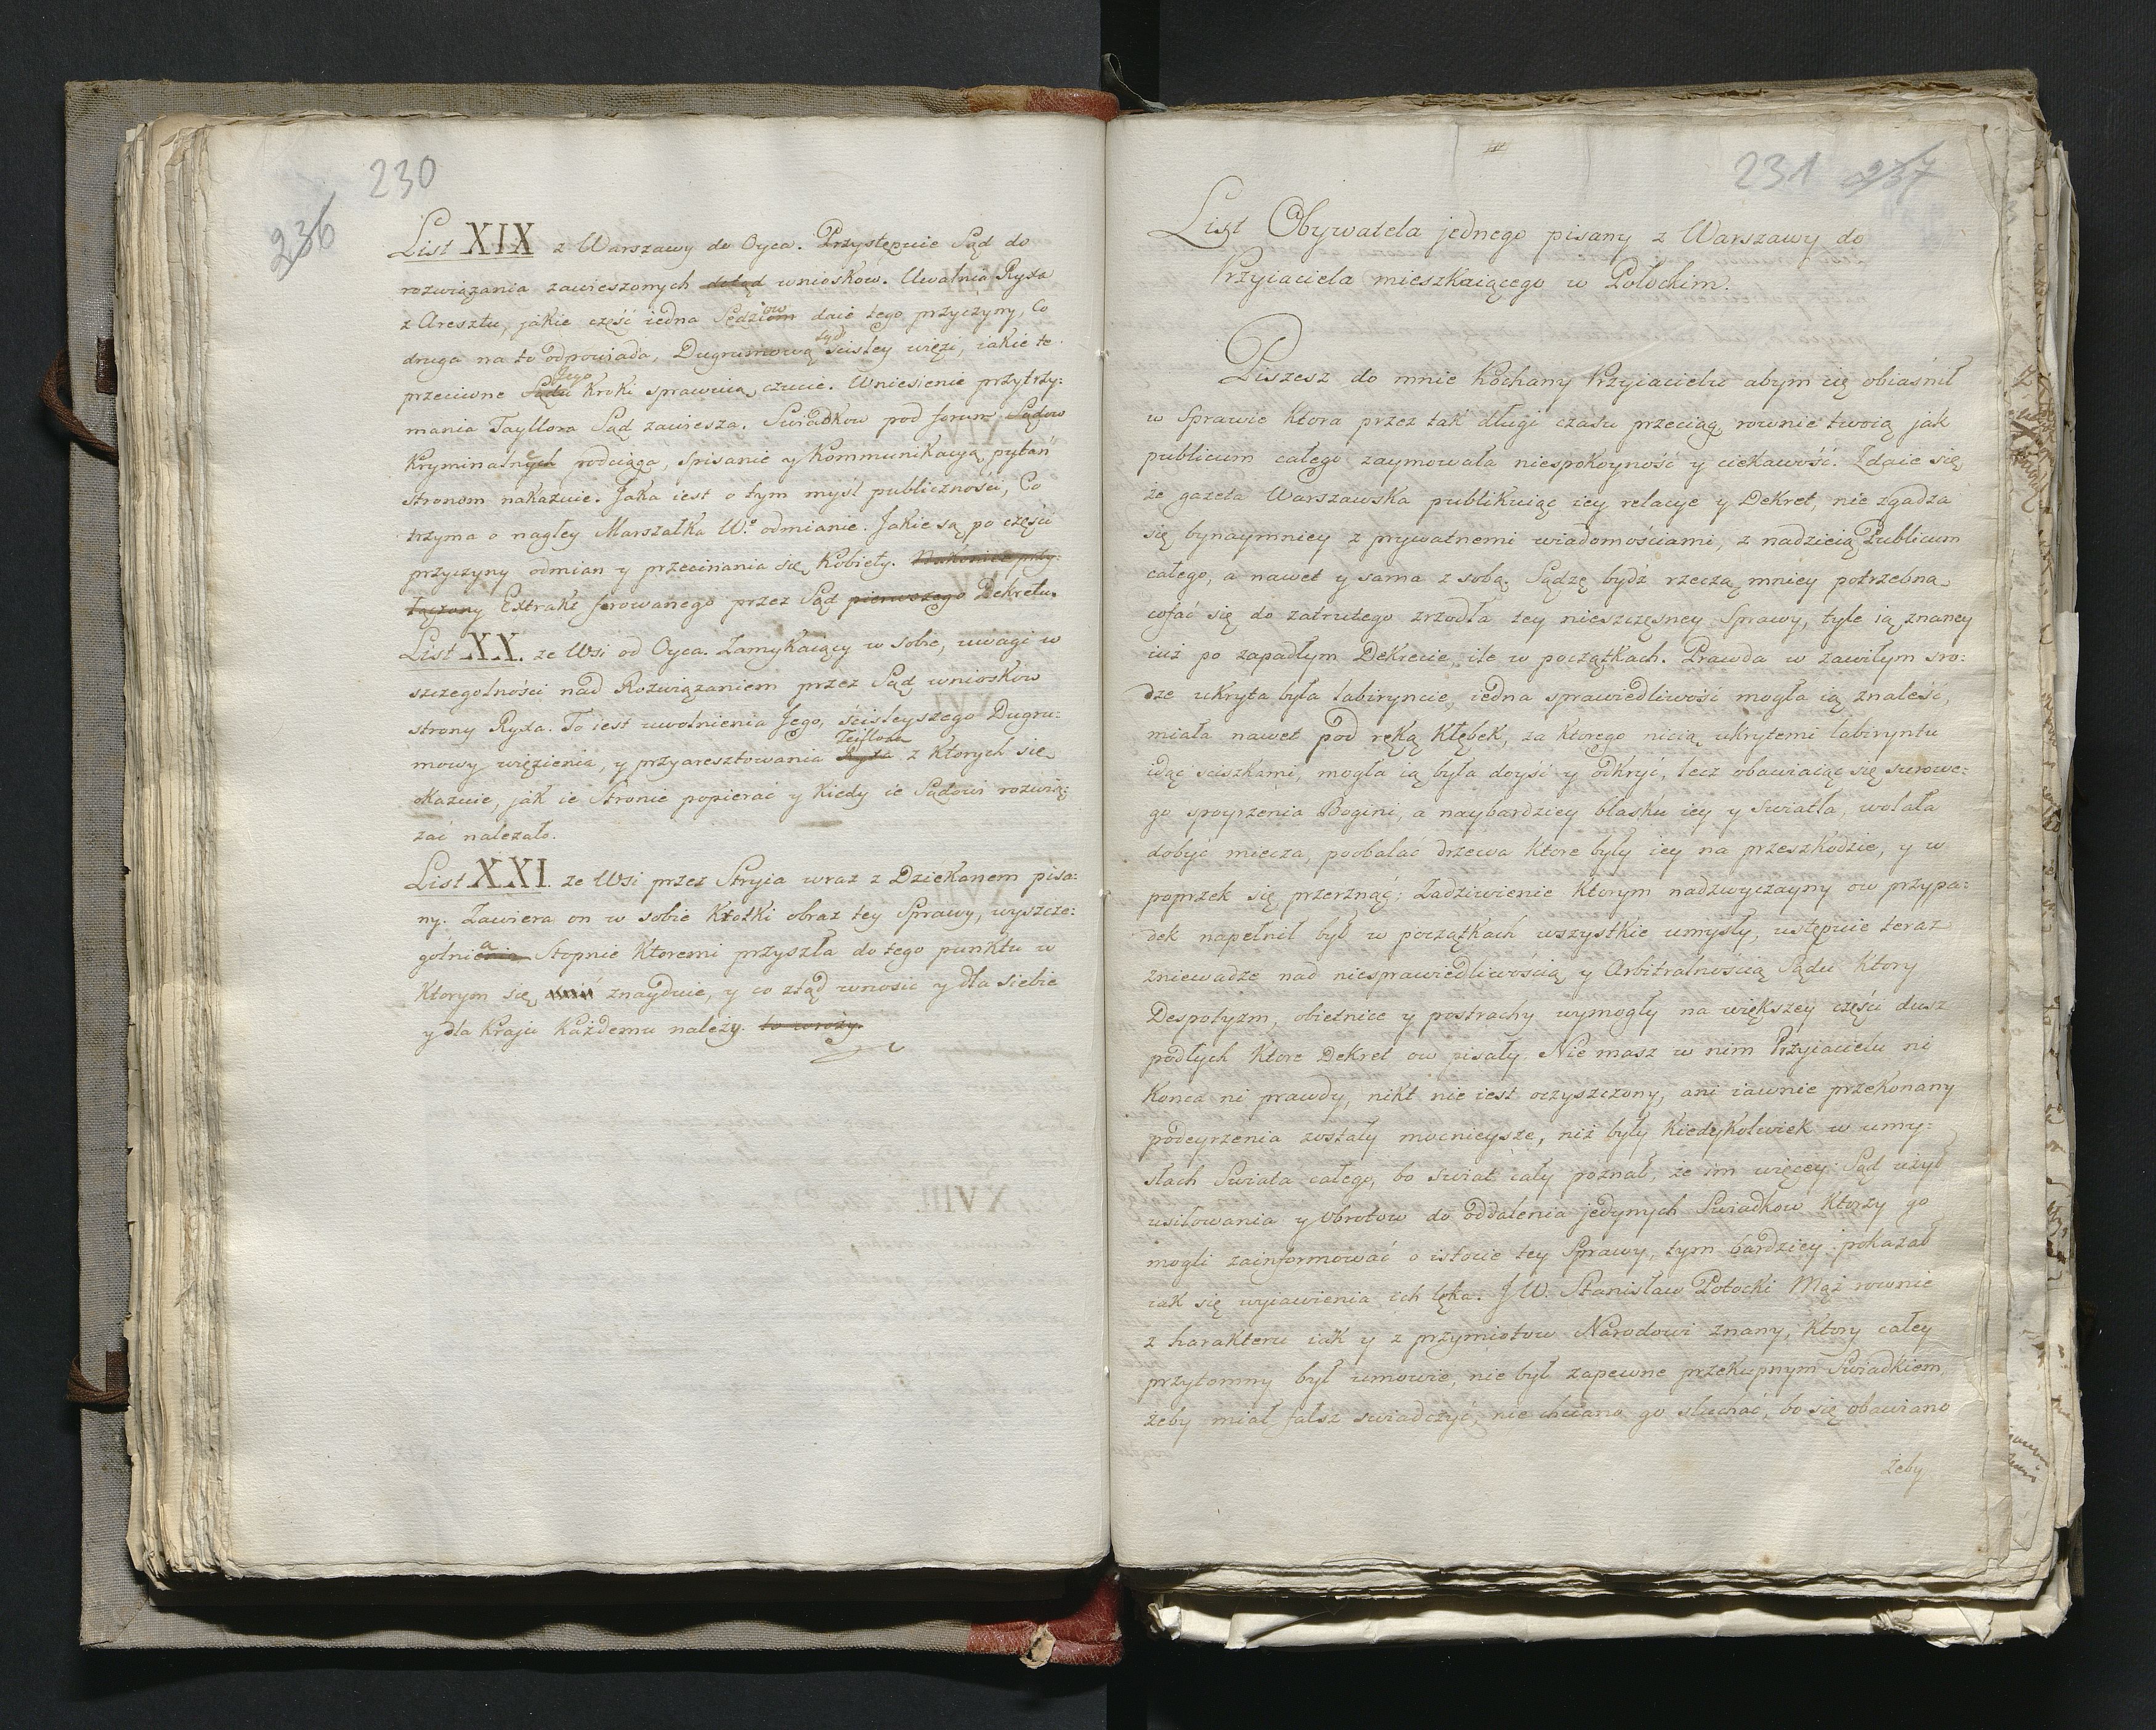 230
236
List XIX z Warszawy do Oyca. Przystępuie Sąd do
rozwiązania zawieszonych dotąd wnioskow. Uwalnia Ryxa
z Aresztu, jakie część iedna Sędziow daie tego przyczyny, Co
druga na to odpowiada, Dugrumową tyd scisley więzi, iakie te
przeciwne Sądu Jego Kroki sprawuią czucie. Wniesienie przytrzy:
mania Tayllora Sąd zawiesza. Swiadkow pod forum Sądow
Kryminalnych podciąga, spisanie y Kommunikacyą pytań
stronom nakazuie. Jaka iest o tym myśl publiczności, Co
trzyma o nagłey Marszałka W.º odmianie. Jakie są po części
przyczyny odmian y przecinania się Kobiety. Nakoniec przy:
łączony Extrakt ferowanego przez Sąd pierwszego Dekretu.
List XX. ze Wsi od Oyca. Zamykaiący w sobie, uwagi w
szczegolności nad Rozwiązaniem przez Sąd wnioskow
strony Ryxa. To iest uwolnienia Jego, ściśleyszego Dugru:
mowy więzienia, y przyaresztowania Ryxa Teillora z Ktorych się
okazuie, jak ie Stronie popierac y Kiedy ie Sądowi rozwią:
zać nalezało.
List XXI. ze Wsi przez Stryia wraz z Dziekanem pisa:
ny. Zawiera on w sobie Krotki obraz tey Sprawy, wyszcze:
golnienia a Stopnie Ktoremi przyszła do tego punktu w
Ktorym się znayduie, y co ztąd wnosic y dla siebie
y dla Kraju Każdemu należy. to wroży.
231 237
List Obywatela jednego pisany z Warszawy do
Przyiaciela mieszkaiącego w Połockim.
Piszesz do mnie Kochany Przyiacielu abym cię obiaśnił
w Sprawie Ktora przez tak długi czasu przeciąg rownie twoią jak
publicum całego zaymowała niespokoyność y ciekawość. Zdaie się
że gazeta Warszawska publikuiąc iey relacye y Dekret, nie zgadza
się bynaymniey z prywatnemi wiadomościami, z nadzieią Publicum
całego, a nawet y sama z sobą. Sądzę bydź rzeczą mniey potrzebną
cofać się do zatrutego zrzodła tey nieszczęsney Sprawy, tyle ią znaney
iuż po zapadłym Dekrecie, ile w początkach. Prawda w zawiłym sro:
dze ukryta była labiryncie, iedna sprawiedliwość mogła ią znaleść,
miała nawet pod ręką Kłębek, za Ktorego nicią ukrytemi labiryntu
idąc sciszkami, mogła ią była doyść y odkryć, lecz obawiaiąc się surowe:
go spoyrzenia Bogini, a naybardziey blasku iey y swiatła, wolała
dobyć miecza, poobalac drzewa Ktore były iey na przeszkodzie, y w
poprzek się przerznąć; Zadziwienie Ktorym nadzwyczayny ow przypa:
dek napełnił był w początkach wszystkie umysły, ustępuie teraz
zniewadze nad niesprawiedliwością y Arbitralnością Sądu Ktory
Despotyzm, obietnice y postrachy wymogły na większey części dusz
podłych Ktore Dekret ow pisały. Nie masz w nim Przyiacielu ni
Konca ni prawdy, nikt nie iest oczyszczony, ani iawnie przekonany
podeyrzenia zostały mocnieysze, niż były Kiedykolwiek w umy:
słach Swiata całego, bo swiat cały poznał, że im więcey Sąd użył
usiłowania y obrotow do oddalenia jedynych Swiadkow Ktorzy go
mogli zainformować o istocie tey Sprawy, tym bardziey pokazał
iak się wyiawienia ich lęka. J W. Stanisław Potocki Mąż rownie
z harakteru iak y z przymiotow Narodowi znany, Ktory całey
przytomny był umowie, nie był zapewne przekupnym Swiadkiem,
żeby miał fałsz swiadczyć, nie chciano go słuchać, bo się obawiano
żeby